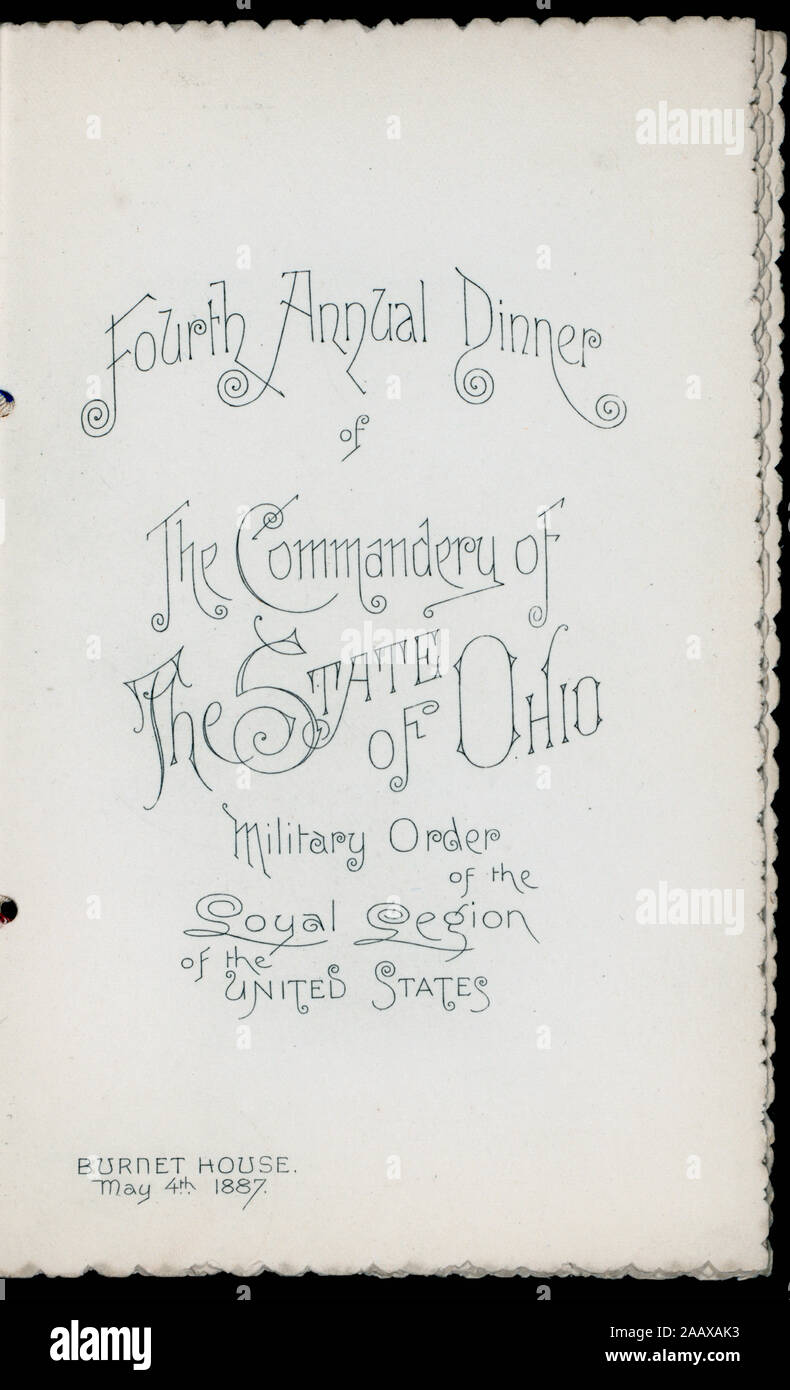 Fourth Annual Dinner
of
The Commandery of
The State of Ohio
Military Order
of the
Loyal Legion
of the
United States
BURNET HOUSE.
May 4th 1887.
alamy
alamy
alamy
alamy
Image ID: 2AAXAK3
www.alamy.com